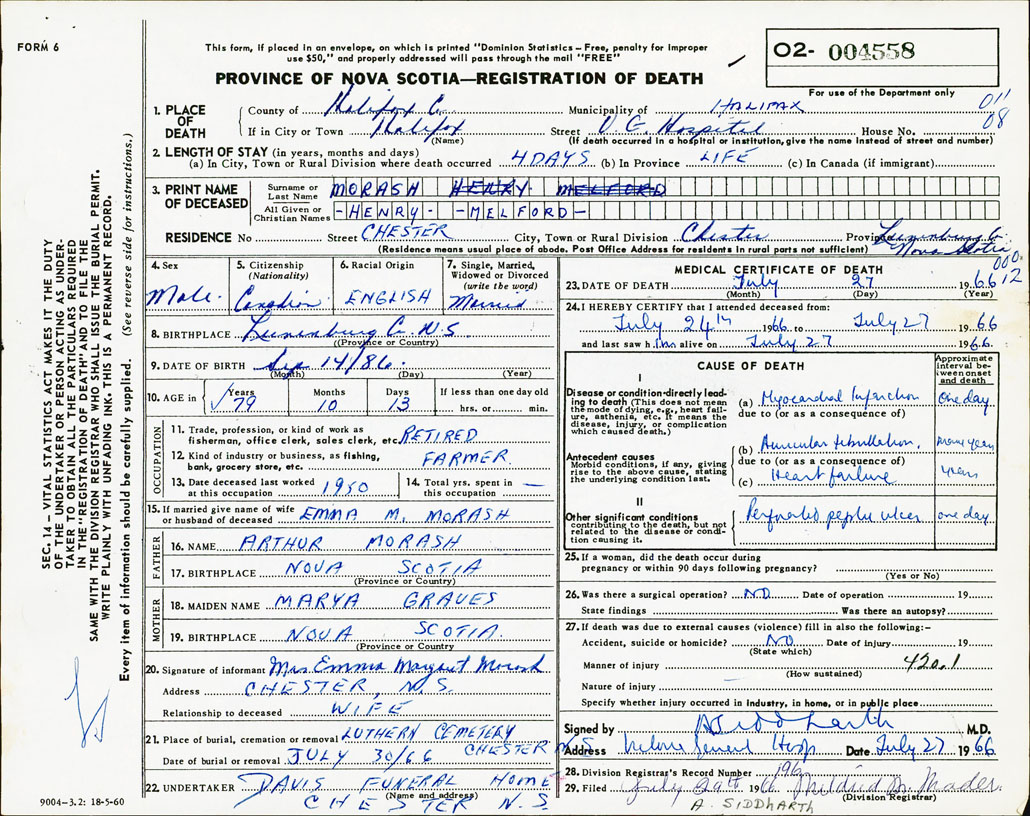 FORM 6
This form, if placed in an envelope, on which is printed "Dominion Statistics – Free, penalty for improper
use $50," and properly addressed will pass through the mail "FREE"
PROVINCE OF NOVA SCOTIA—REGISTRATION OF DEATH
02- 004558
For use of the Department only
011
08
1. PLACE OF DEATH
County of Halifax Co. Municipality of HALIFAX
If in City or Town Halifax Street V. G. Hospital House No.
(Name) (If death occurred in a hospital or institution, give the name instead of street and number)
2. LENGTH OF STAY (in years, months and days)
(a) In City, Town or Rural Division where death occurred 4 DAYS (b) In Province LIFE (c) In Canada (if immigrant)
3. PRINT NAME OF DECEASED
Surname or Last Name MORASH HENRY MELFORD
All Given or Christian Names -HENRY- -MELFORD-
RESIDENCE No Street CHESTER City, Town or Rural Division Chester Province Lunenburg Co
Nova Scotia
(Residence means usual place of abode. Post Office Address for residents in rural parts not sufficient)
060
12
4. Sex Male
5. Citizenship (Nationality) Canadian
6. Racial Origin ENGLISH
7. Single, Married, Widowed or Divorced (write the word) Married
8. BIRTHPLACE Lunenburg Co. N.S
(Province or Country)
9. DATE OF BIRTH Sep 14/86
(Month) (Day) (Year)
10. AGE in Years 79 Months 10 Days 13 If less than one day old hrs. or min.
OCCUPATION
11. Trade, profession, or kind of work as fisherman, office clerk, sales clerk, etc. RETIRED
12. Kind of industry or business, as fishing, bank, grocery store, etc. FARMER
13. Date deceased last worked at this occupation 1950
14. Total yrs. spent in this occupation —
15. If married give name of wife or husband of deceased EMMA M. MORASH
FATHER
16. NAME ARTHUR MORASH
17. BIRTHPLACE NOVA SCOTIA
(Province or Country)
MOTHER
18. MAIDEN NAME MARYA GRAVES
19. BIRTHPLACE NOVA SCOTIA
(Province or Country)
20. Signature of informant Mrs Emma Margaret Morash
Address CHESTER, N.S.
Relationship to deceased WIFE
21. Place of burial, cremation or removal LUTHERN CEMETERY
CHESTER N S
Date of burial or removal JULY 30/66
22. UNDERTAKER DAVIS FUNERAL HOME
(Name and address)
CHESTER N.S.
MEDICAL CERTIFICATE OF DEATH
23. DATE OF DEATH July 27 1966
(Month) (Day) (Year)
24. I HEREBY CERTIFY that I attended deceased from:
July 24th 1966 to July 27 1966
and last saw him alive on July 27 1966.
CAUSE OF DEATH
Approximate interval between onset and death
I
Disease or condition directly leading to death (This does not mean the mode of dying, e.g., heart failure, asthenia, etc. It means the disease, injury, or complication which caused death.)
(a) Myocardial Infarction one day
due to (or as a consequence of)
Antecedent causes
Morbid conditions, if any, giving rise to the above cause, stating the underlying condition last.
(b) Auricular fibrillation. many years
due to (or as a consequence of)
(c) Heart failure years
II
Other significant conditions contributing to the death, but not related to the disease or condition causing it.
Perforated peptic ulcer one day
25. If a woman, did the death occur during pregnancy or within 90 days following pregnancy?
(Yes or No)
26. Was there a surgical operation? NO Date of operation 19
State findings Was there an autopsy?
27. If death was due to external causes (violence) fill in also the following:–
Accident, suicide or homicide? NO Date of injury 19
(State which)
Manner of injury 420.1
(How sustained)
Nature of injury
Specify whether injury occurred in industry, in home, or in public place
Signed by A Siddharth M.D.
Address Victoria General Hosp Date July 27 1966
28. Division Registrar's Record Number 196
29. Filed July 29th 196 Mildred D. Mader
(Division Registrar)
A. SIDDHARTH
SEC. 14 – VITAL STATISTICS ACT MAKES IT THE DUTY
OF THE UNDERTAKER OR PERSON ACTING AS UNDER-
TAKER TO OBTAIN ALL THE PARTICULARS REQUIRED
IN THE "REGISTRATION OF DEATH" AND TO FILE THE
SAME WITH THE DIVISION REGISTRAR WHO SHALL ISSUE THE BURIAL PERMIT.
WRITE PLAINLY WITH UNFADING INK. THIS IS A PERMANENT RECORD.
Every item of information should be carefully supplied. (See reverse side for instructions.)
9004-3.2: 18-5-60